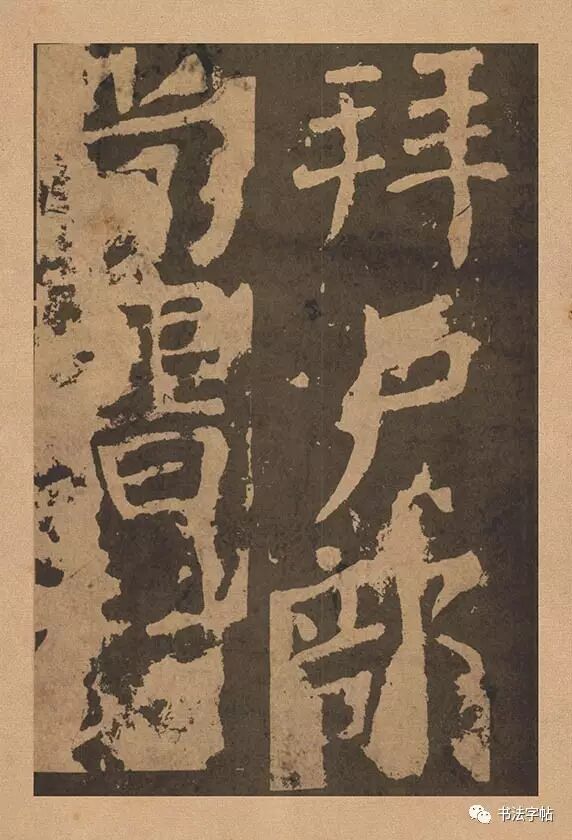 拜户部
尚書
书法字帖